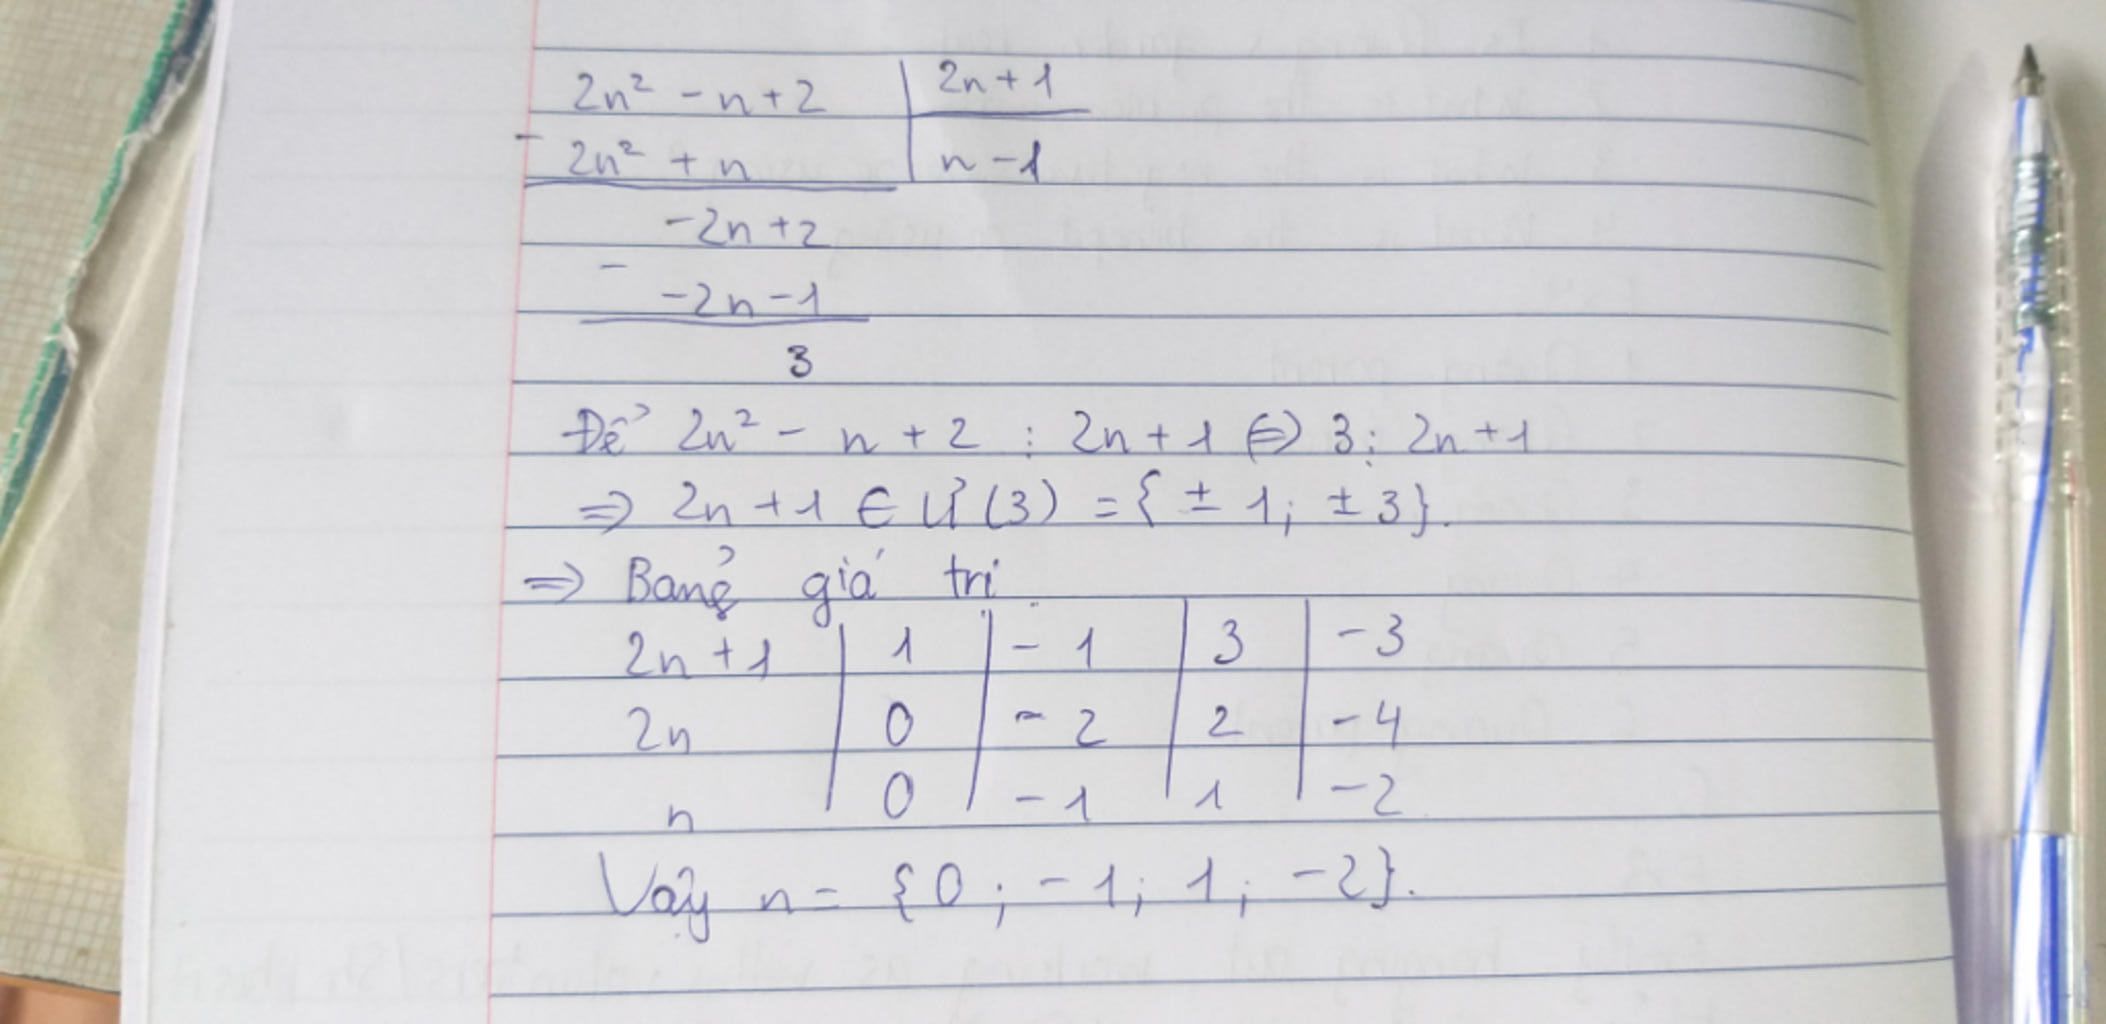 2n² - n + 2 | 2n + 1
- 2n² + n | n - 1
-2n + 2
- -2n - 1
3
Để 2n² - n + 2 ⋮ 2n + 1 ⇔ 3 ⋮ 2n + 1
⇒ 2n + 1 ∈ Ư(3) = {± 1; ± 3}.
⇒ Bảng giá trị
2n + 1 | 1 | - 1 | 3 | - 3
2n | 0 | - 2 | 2 | - 4
n | 0 | - 1 | 1 | - 2
Vậy n = {0; - 1; 1; - 2}.